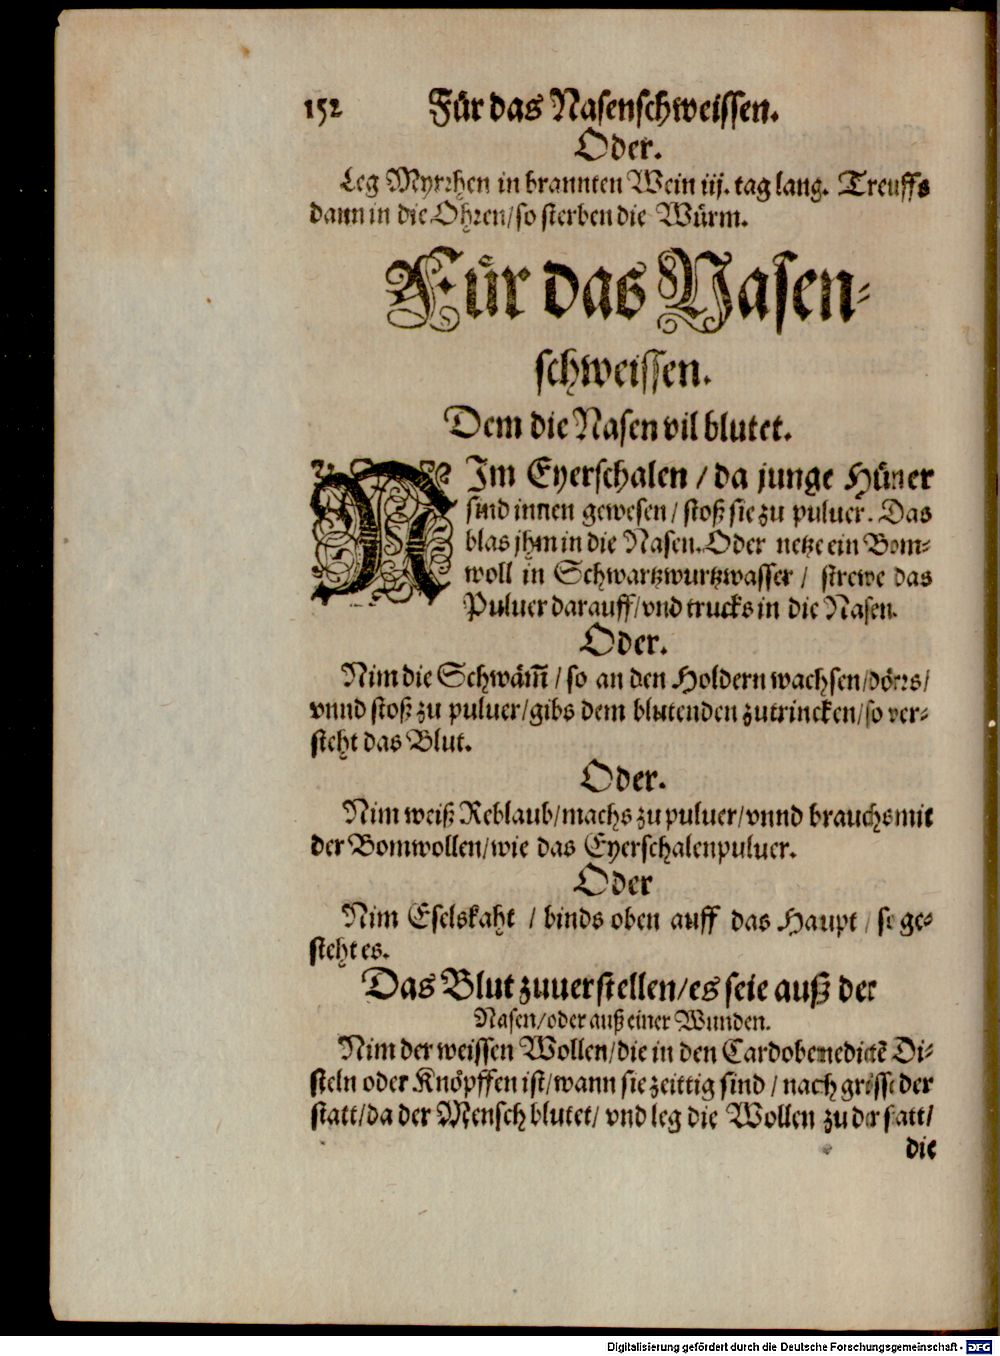 152 Für das Nasenschweissen.
Oder.
Leg Myrrhen in brannten Wein iij. tag lang. Treuffs
dann in die Ohren/so sterben die Würm.
Für das Nasen-
schweissen.
Dem die Nasen vil blutet.
NIm Eyerschalen / da junge Hüner
sind innen gewesen / stoß sie zu puluer. Das
blas jhm in die Nasen. Oder netze ein Bom-
woll in Schwartzwurtzwasser / strewe das
Puluer darauff/vnd trucks in die Nasen.
Oder.
Nim die Schwäm̃ / so an den Holdern wachsen/dörrs/
vnnd stoß zu puluer/gibs dem blutenden zutrincken/so ver-
steht das Blut.
Oder.
Nim weiß Reblaub/machs zu puluer/vnnd brauchs mit
der Bomwollen/wie das Eyerschalenpuluer.
Oder
Nim Eselskaht / binds oben auff das Haupt / so ge-
steht es.
Das Blut zuuerstellen/es seie auß der
Nasen/oder auß einer Wunden.
Nim der weissen Wollen/die in den Cardobenedictẽ Di-
steln oder Knöpffen ist/wann sie zeittig sind / nach grösse der
statt/da der Mensch blutet/ vnd leg die Wollen zu der statt/
die
Digitalisierung gefördert durch die Deutsche Forschungsgemeinschaft - DFG